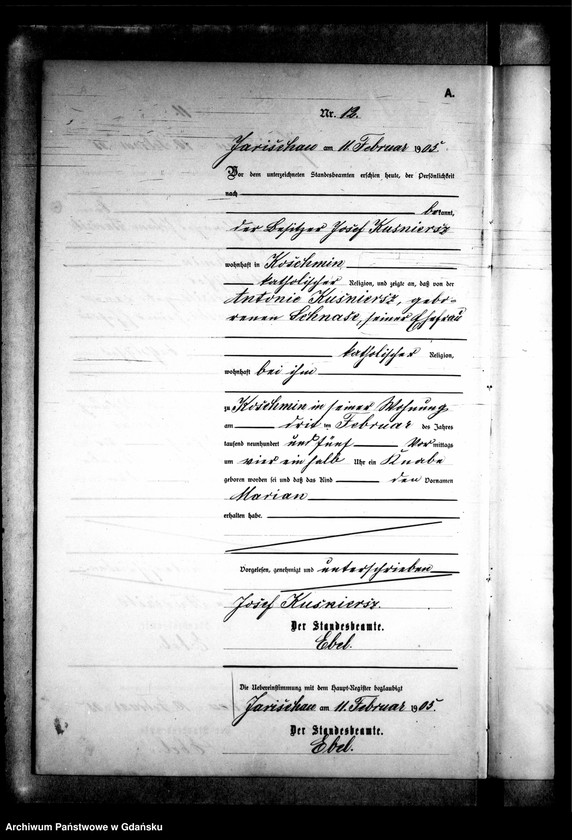 A.
Nr. 12.
Jarischau am 11. Februar 1905.
Vor dem unterzeichneten Standesbeamten erschien heute, der Persönlichkeit
nach
bekannt,
der Besitzer Josef Kuśniersz
wohnhaft in Koschmin
katholischer Religion, und zeigte an, daß von der
Antonie Kuśniersz, gebo-
renen Schnase, seiner Ehefrau
katholischer Religion,
wohnhaft bei ihm
zu Koschmin in seiner Wohnung
am drit ten Februar des Jahres
tausend neunhundert und fünf Vor mittags
um vier ein halb Uhr ein Knabe
geboren worden sei und daß das Kind den Vornamen
Marian
erhalten habe.
Vorgelesen, genehmigt und unterschrieben
Josef Kuśniersz.
Der Standesbeamte.
Ebel.
Die Uebereinstimmung mit dem Haupt-Register beglaubigt
Jarischau am 11. Februar 1905.
Der Standesbeamte.
Ebel.
Archiwum Państwowe w Gdańsku